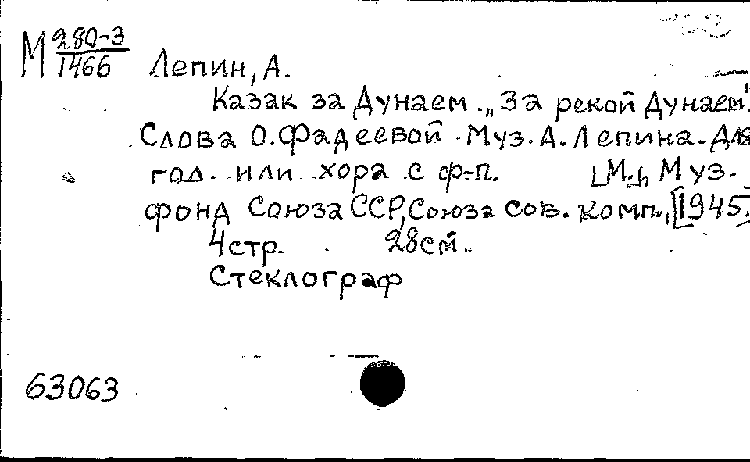 М 280-3
1466
Лепин, А.
Казак за Дунаем. „За рекой Дунаем".
Слова О. Фадеевой. Муз. А. Лепина. Для
гол. или хора с ф.-п. [М.], Муз.
фонд Союза ССР, Союза сов. комп., [1945].
4 стр. 28 см.
Стеклограф
63063